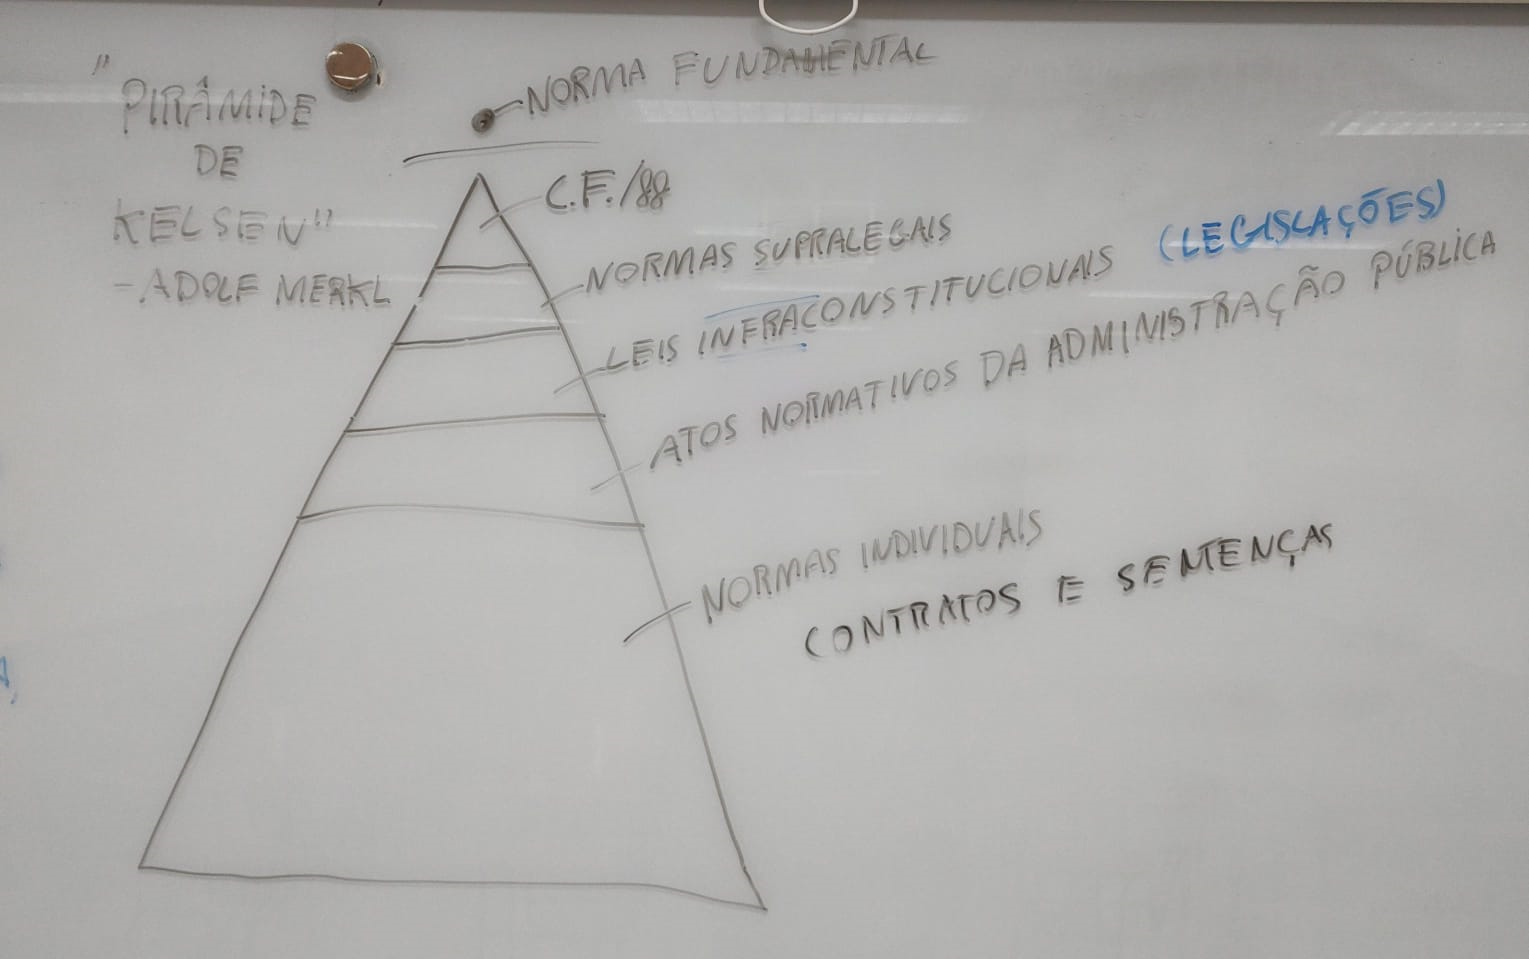 "PIRÂMIDE
DE
KELSEN"
- ADOLF MERKL
NORMA FUNDAMENTAL
C.F./88
NORMAS SUPRALEGAIS
LEIS INFRACONSTITUCIONAIS (LEGISLAÇÕES)
ATOS NORMATIVOS DA ADMINISTRAÇÃO PÚBLICA
NORMAS INDIVIDUAIS
CONTRATOS E SENTENÇAS